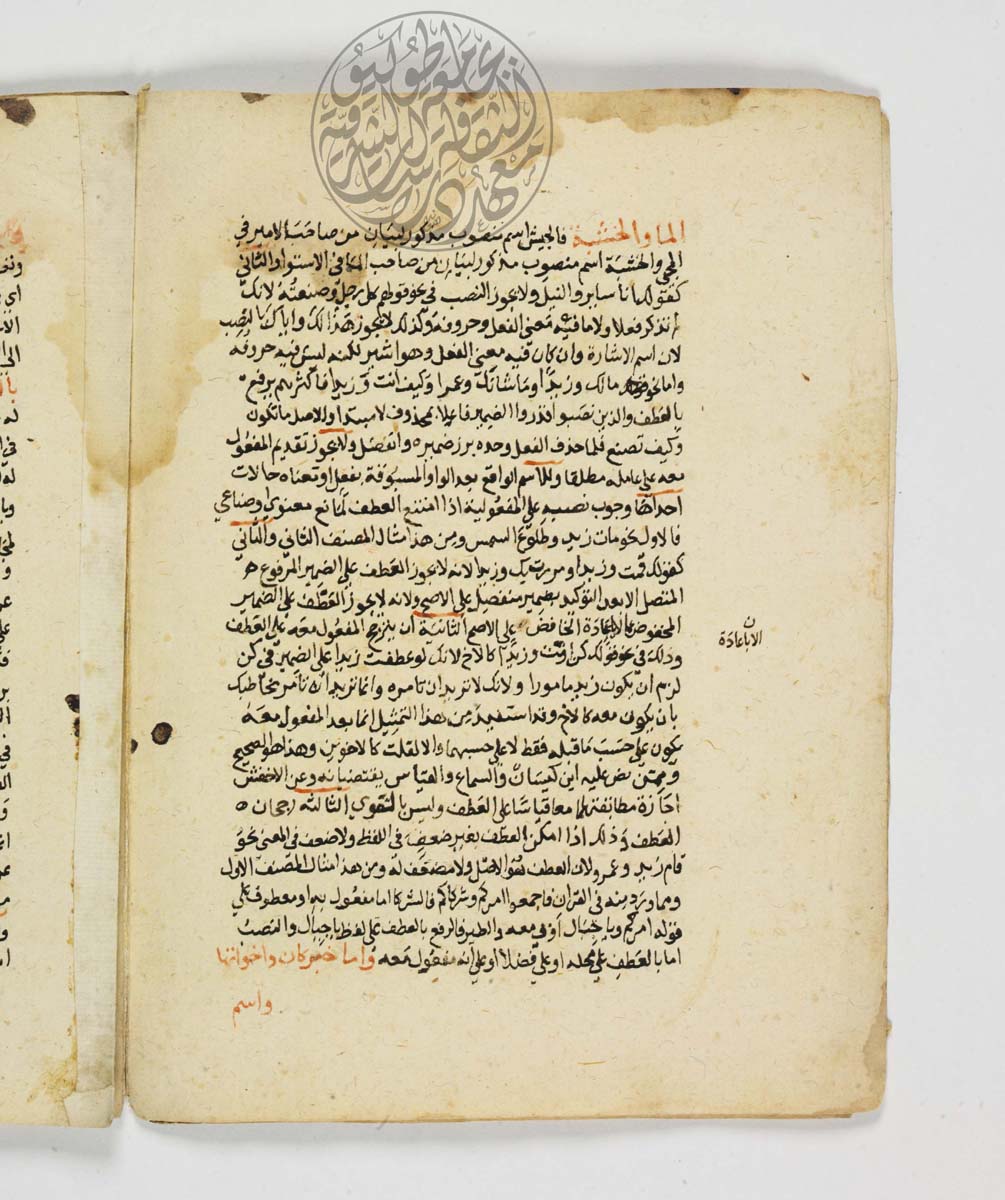 جامعة طوكيو
معهد دراسات الثقافة الشرقية
الماوالخشبة فالجيش اسم منصوب مذكور لبيان من صاحب الامير في
المجي والخشبة اسم منصوب مذكور لبيان من صاحب الما في الاستوا والثاني
كقولك انا ساير والنيل ولا يجوز النصب في نحو قولهم كل رجل وصنعته لانك
لم تذكر فعلا ولا ما فيه معني الفعل وحروفه وكذلك لا يجوز هذا لك واباك بالنصب
لان اسم الاشارة وان كان فيه معني الفعل وهو اشير لكنه ليس فيه حروفه
واما نحو مالك وزيدا وما شانك وعمرا وكيف انت وزيدا فاكثرهم يرفع
بالعطف والذين نصبوا قدروا الضمير فاعلا بمحذوف لا مبتدا والاصل ما تكون
وكيف تصنع فلما حذف الفعل وحده برز ضميره وانفصل ولا يجوز تقديم المفعول
معه علي عامله مطلقا وللاسم الواقع بعد الواو المسبوقة بفعل او معناه حالات
احداها وجوب نصبه علي المفعولية اذا امتنع العطف لمانع معنوي او صناعي
فالاول نحو مات زيد وطلوع الشمس ومن هذا مثال المصنف الثاني والثاني
كقولك قمت وزيدا ومررت بك وزيدا لانه لا يجوز العطف علي الضمير المرفوع
المتصل الا بعد التوكيد بضمير منفصل علي الاصح ولانه لا يجوز العطف علي الضمير
المخفوض الا باعادة الخافض علي الاصح الثانية ان يترجح المفعول معه علي العطف
وذلك في نحو قولك كن انت وزيدا كالاخ لانك لو عطفت زيدا علي الضمير في كن
لزم ان يكون زيد مامورا ولانك لا تريد ان تامره وانما تريد ان تامر مخاطبك
بان يكون معه كالاخ وقد استفيد من هذا التمثيل انما بعد المفعول معه
يكون علي حسب ما قبله فقط لا علي حسبهما والا لقلت كالاخوين وهذا هو الصحيح
وممن نص عليه ابن كيسان والسماع والقياس يقتضيانه وعن الاخفش
اجازة مطابقتهما معا قياسا علي العطف وليس بالقوي الثالثة رجحان
العطف وذلك اذا امكن العطف بغير ضعف في اللفظ ولا ضعف في المعني نحو
قام زيد وعمرو لان العطف هو الاصل ولا مضعف له ومن هذا مثال المصنف الاول
ومما ورد منه في القران فاجمعوا امركم وشركاكم فالشركا اما مفعول به او معطوف علي
قوله امركم ويا جبال اوبي معه والطير فالرفع بالعطف علي لفظ يا جبال والنصب
اما بالعطف علي محله او علي فضلا او علي انه مفعول معه واما خبر كان واخواتها
واسم
الا باعادة